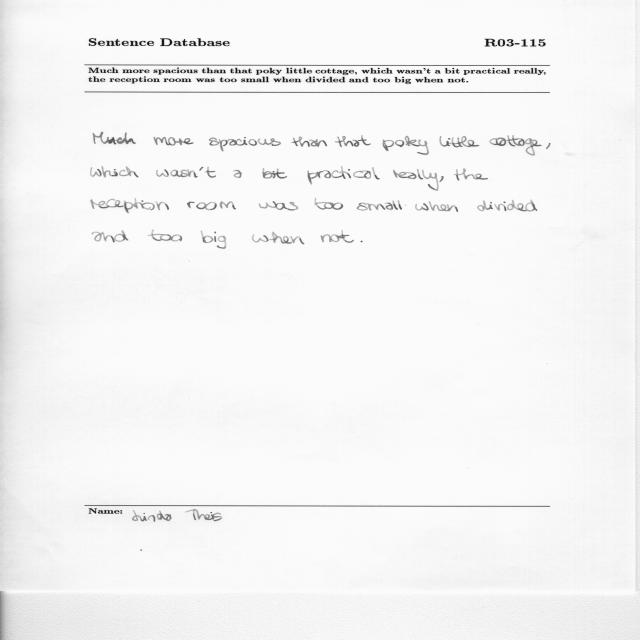 Sentence Database R03-115
Much more spacious than that poky little cottage, which wasn't a bit practical really,
the reception room was too small when divided and too big when not.
Much more spacious than that poky little cottage,
which wasn't a bit practical really, the
reception room was too small when divided
and too big when not.
Name: Linda Theis